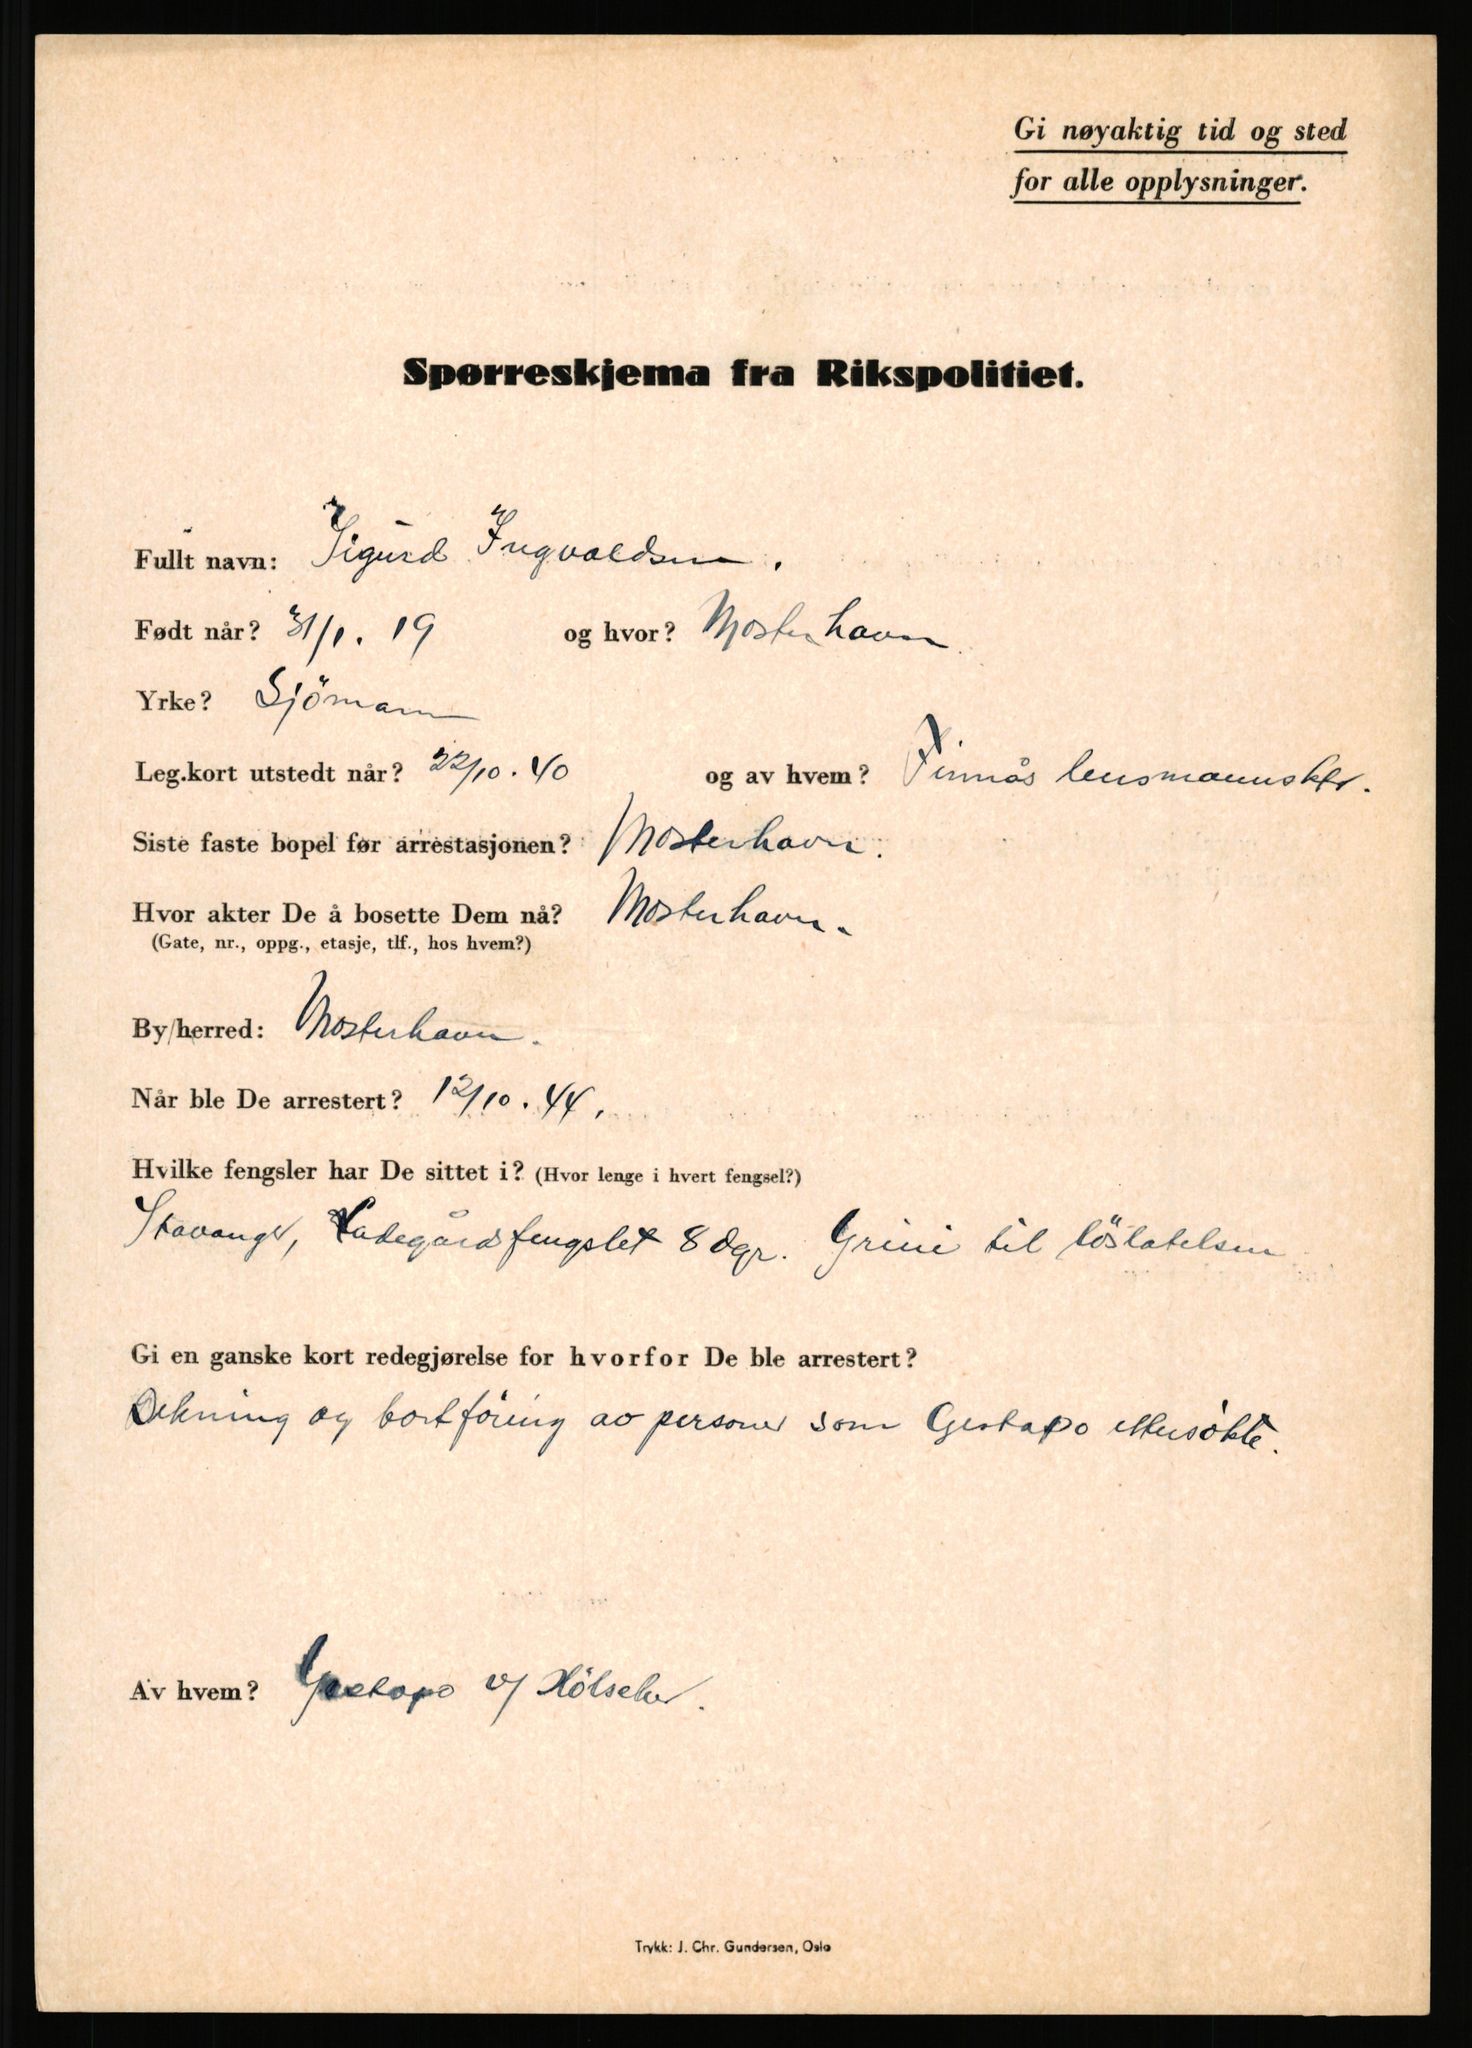 Gi nøyaktig tid og sted
for alle opplysninger.
Spørreskjema fra Rikspolitiet.
Fullt navn: Sigurd Ingvaldsen.
Født når? 31/1. 19 og hvor? Mosterhavn
Yrke? Sjömann
Leg.kort utstedt når? 22/10. 40 og av hvem? Finnås lensmannsktr.
Siste faste bopel før arrestasjonen? Mosterhavn.
Hvor akter De å bosette Dem nå? Mosterhavn.
(Gate, nr., oppg., etasje, tlf., hos hvem?)
By/herred: Mosterhavn.
Når ble De arrestert? 12/10. 44.
Hvilke fengsler har De sittet i? (Hvor lenge i hvert fengsel?)
Stavanger, Ladegårdsfengslet 8 dgr. Grini til löslatelsen
Gi en ganske kort redegjørelse for hvorfor De ble arrestert?
Dekning og bortföring av personer som Gestapo ettersökte.
Av hvem? Gestapo v/ Hölscher.
Trykk: J. Chr. Gundersen, Oslo